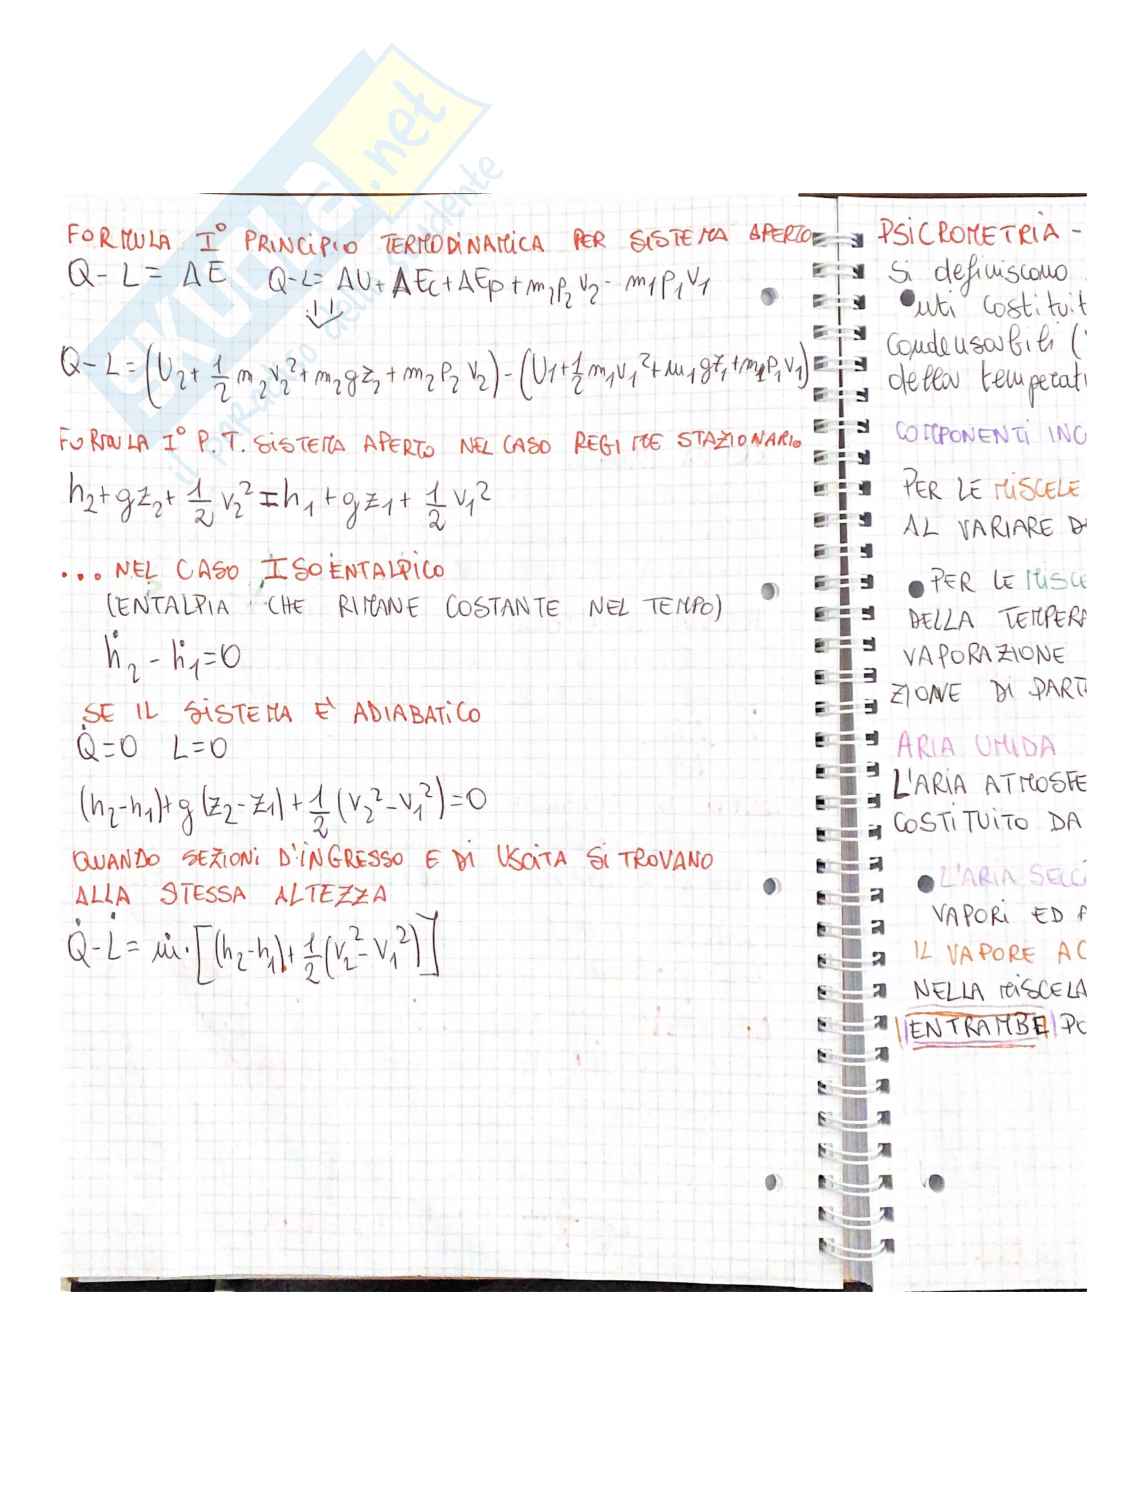 SKUOLA.net
il paradiso dello studente
FORMULA I° PRINCIPIO TERMODINAMICA PER SISTEMA APERTO
Q - L = ΔE Q-L= ΔU+ ΔEc+ΔEp+m₂P₂V₂- m1P1V1
Q-L=(U₂+ 1/2 m₂V₂²+m₂gz₂+m₂P₂V₂)-(U1+1/2 m₁V₁²+m₁gz₁+m1P₁V₁)
FORMULA I° P.T. SISTEMA APERTO NEL CASO REGIME STAZIONARIO
h₂+gz₂+ 1/2 V₂²=h₁+gz₁+ 1/2 V₁²
... NEL CASO ISOENTALPICO
(ENTALPIA CHE RIMANE COSTANTE NEL TEMPO)
ḣ₂-ḣ₁=0
SE IL SISTEMA E' ADIABATICO
Q̇=0 L=0
(h₂-h₁)+g(z₂-z₁)+1/2(V₂²-V₁²)=0
QUANDO SEZIONI D'INGRESSO E DI USCITA SI TROVANO
ALLA STESSA ALTEZZA
Q̇-L̇= ṁ·[(h₂-h₁)+1/2(V₂²-V₁²)]
PSICROMETRIA -
Si definiscono
uti costituit
condensabili (
della temperat
COMPONENTI INC
PER LE MISCELE
AL VARIARE D
PER LE MISCE
DELLA TEMPERA
VAPORAZIONE
ZIONE DI PART
ARIA UMIDA
L'ARIA ATMOSFE
COSTITUITO DA
L'ARIA SECC
VAPORI ED A
IL VAPORE AC
NELLA MISCELA
ENTRAMBE PO